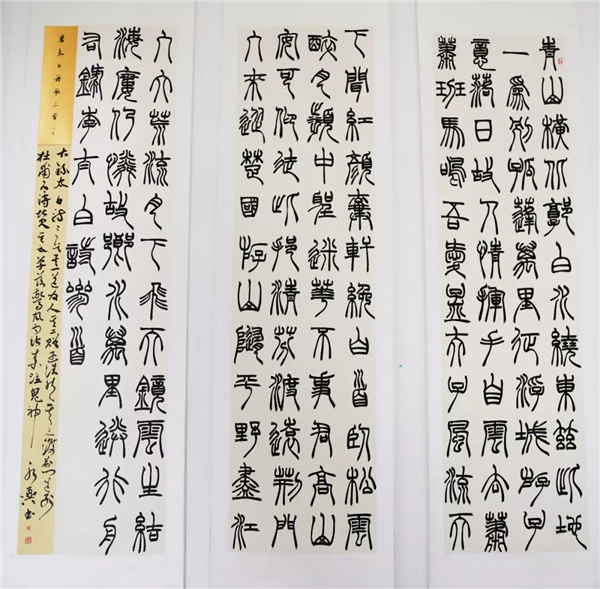 青山橫北郭白水繞東茲此地
一爲別孤蓬萬里征浮城游子
意落日故人情揮手自雲去蕭
蕭班馬鳴吾愛孟夫子風流天
下聞紅顏棄軒冕白首臥松雲
醉月頻中聖迷花不事君高山
安可仰徒此揖清芬渡遠荊門
外來從楚國游山隨平野盡江
入大荒流月下飛天鏡雲生結
海樓仍憐故鄉水萬里送行舟
右錄李太白詩首
李太白詩歌三首
右錄太白詩
杜甫有詩贊筆落驚風雨詩成泣鬼神